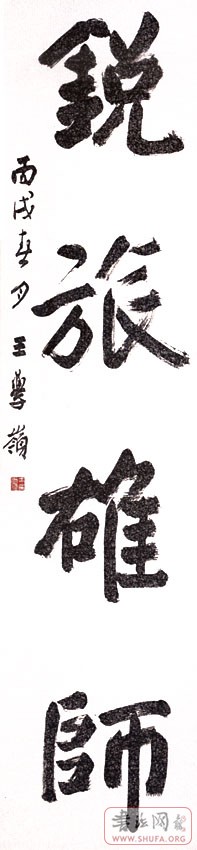 鋭旅雄師
丙戌春月王學嶺
書法网
WWW.SHUFA.ORG